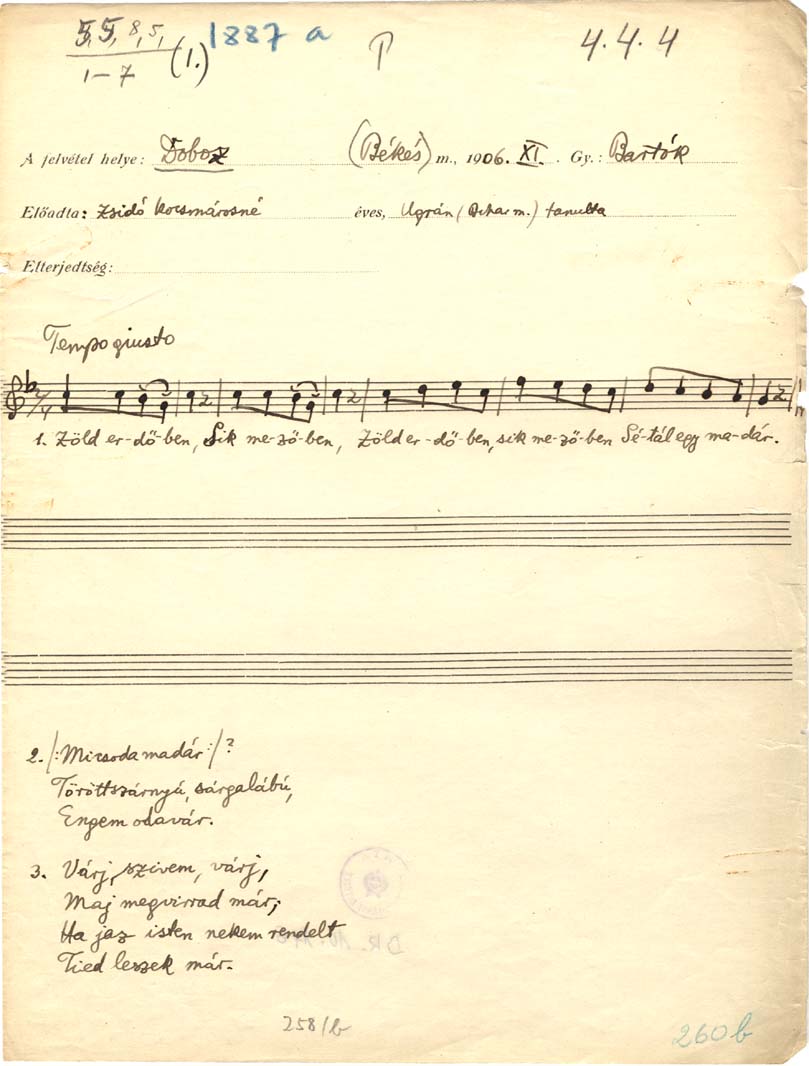 5, 5, 8, 5, (1.) 1887 a P 4. 4. 4
1–7
A felvétel helye: Doboz (Békés) m., 1906. XI. Gy.: Bartók
Előadta: Zsidó kocsmárosné éves, Ugrán (Bihar m.) tanulta
Elterjedtség:
Tempo giusto
1. Zöld er-dő-ben, Sik me-ző-ben, Zöld er-dő-ben, sik me-ző-ben Sé-tál egy ma-dár.
2. /: Micsoda madár :/ ?
Töröttszárnyú, sárgalábú,
Engem odavár.
3. Várj, szivem, várj,
Maj megvirrad már;
Ha jaz isten nekem rendelt
Tied leszek már.
258/b
260 b